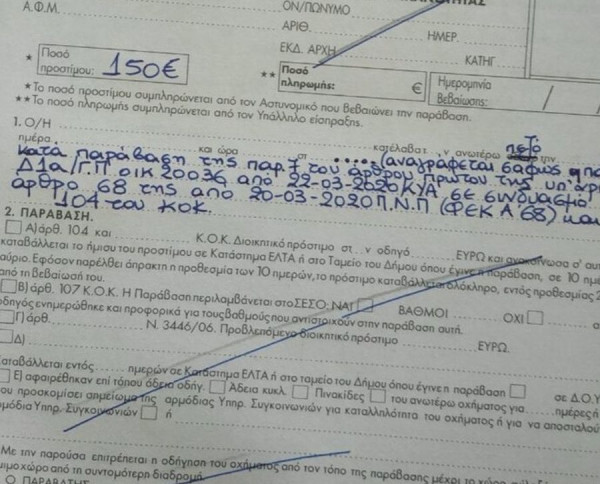 Α.Φ.Μ.
ΟΝ/ΠΩΝΥΜΟ
ΑΡΙΘ.
ΗΜΕΡ.
ΕΚΔ. ΑΡΧΗ
ΚΑΤΗΓ
* Ποσό προστίμου: 150€
** Ποσό πληρωμής: €
Ημερομηνία Βεβαίωσης: / /
*Το ποσό προστίμου συμπληρώνεται από τον Αστυνομικό που βεβαιώνει την παράβαση.
**Το ποσό πληρωμής συμπληρώνεται από τον Υπάλληλο είσπραξης.
1. Ο/Η
ημέρα και ώρα στ καταλαβατ. ν ανωτέρω την
κατά παράβαση της παρ. 7 του άρθρου πρώτου της υπ'αρ
Δ1α/Γ.Π οικ 20036 από 22-03-2020 ΚΥΑ σε συνδυασμό
άρθρο 68 της από 20-03-2020 Π.Ν.Π (ΦΕΚ Α' 68) και
104 του ΚΟΚ.
2. ΠΑΡΑΒΑΣΗ.
Α) άρθ. 104 και Κ.Ο.Κ. Διοικητικό πρόστιμο στ.. ν οδηγό ΕΥΡΩ και ανακοίνωσα σ' αυτ
καταβάλλεται το ήμισυ του προστίμου σε Κατάστημα ΕΛΤΑ ή στο Ταμείο του Δήμου όπου έγινε η παράβαση, σε 10 ημέ
αύριο. Εφόσον παρέλθει άπρακτη η προθεσμία των 10 ημερών, το πρόστιμο καταβάλλεται ολόκληρο, εντός προθεσμίας 2
από τη βεβαίωσή του.
Β) άρθ. 107 Κ.Ο.Κ. Η Παράβαση περιλαμβάνεται στο ΣΕΣΟ: ΝΑΙ ΒΑΘΜΟΙ ΟΧΙ
οδηγός ενημερώθηκε και προφορικά για τους βαθμούς που αντιστοιχούν στην παράβαση αυτή.
Γ) άρθ. Ν. 3446/06. Προβλεπόμενο διοικητικό πρόστιμο ΕΥΡΩ.
Δ)
Καταβάλλεται εντός ημερών σε Κατάστημα ΕΛΤΑ ή στο ταμείο του Δήμου όπου έγινε η παράβαση σε Δ.Ο.Υ
Ε) αφαιρέθηκαν επί τόπου άδεια οδήγ. Άδεια κυκλ. Πινακίδες του ανωτέρω οχήματος για ημέρες ή
του προσκομίσει σημείωμα της αρμόδιας Υπηρ. Συγκοινωνιών για καταλληλότητα του οχήματος ή για να αποσταλού
αρμόδια Υπηρ. Συγκοινωνιών ή
Με την παρούσα επιτρέπεται η οδήγηση του οχήματος από τον τόπο της παράβασης μέχρι το χώρο
ιμο χώρο από τη συντομότερη διαδρομή.
Ο ΠΑΡΑΒΑΤΗΣ